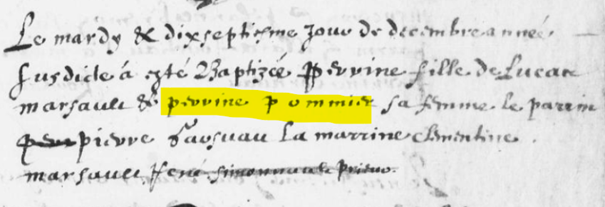 Le mardy & dixseptiesme jour de decembre année
susdicte à esté Baptizée Perrine fille de Lucas
marsault & perrine pommier sa femme le parrin
pierre la marrine clementine
marsault